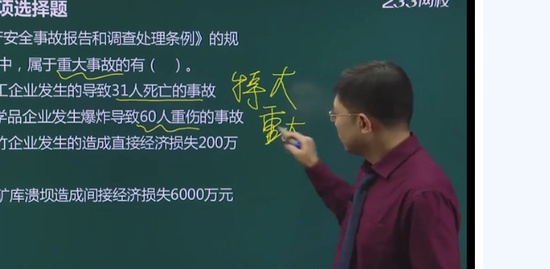 项选择题
233网校
安全事故报告和调查处理条例》的规
中，属于重大事故的有（ ）。
工企业发生的导致31人死亡的事故
学品企业发生爆炸导致60人重伤的事故
竹企业发生的造成直接经济损失200万
矿库溃坝造成间接经济损失6000万元
特大
重大